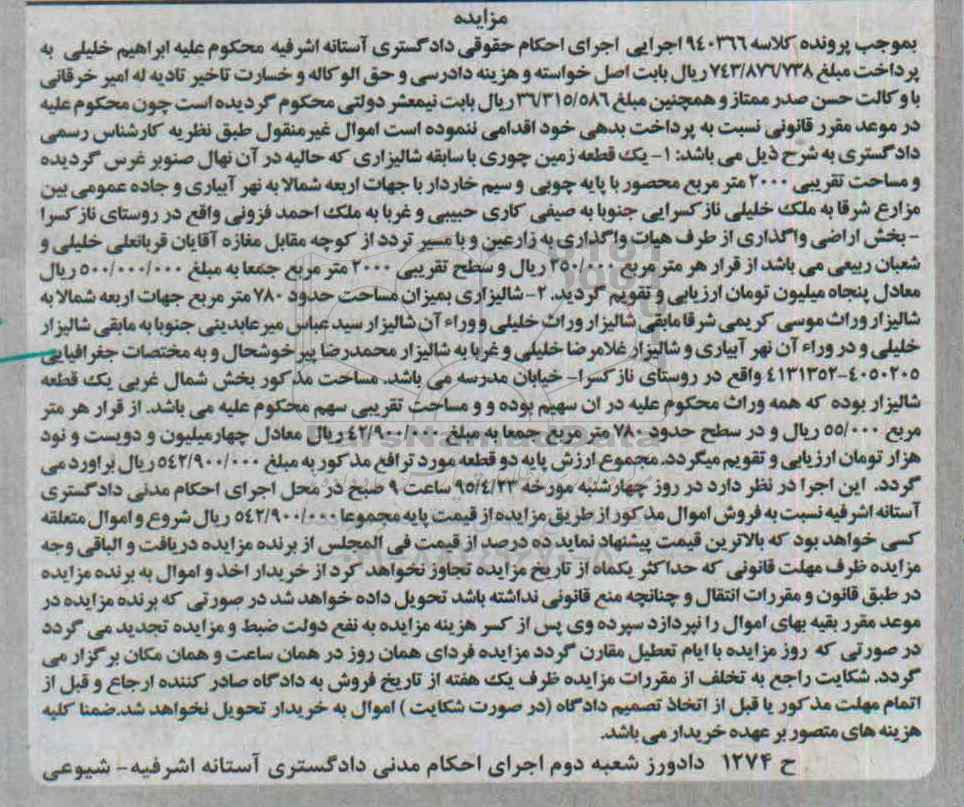 مزایده
بموجب پرونده کلاسه ۹۴۰۳۶۶ اجرایی اجرای احکام حقوقی دادگستری آستانه اشرفیه محکوم علیه ابراهیم خلیلی به
پرداخت مبلغ ۷۴۳/۸۷۶/۷۳۸ ریال بابت اصل خواسته و هزینه دادرسی و حق الوکاله و خسارت تاخیر تادیه له امیر خرقانی
با وکالت حسن صدر ممتاز و همچنین مبلغ ۳۶/۳۱۵/۵۸۶ ریال بابت نیمعشر دولتی محکوم گردیده است چون محکوم علیه
در موعد مقرر قانونی نسبت به پرداخت بدهی خود اقدامی ننموده است اموال غیر منقول طبق نظریه کارشناس رسمی
دادگستری به شرح ذیل می باشد: ۱- یک قطعه زمین چوری با سابقه شالیزاری که حالیه در آن نهال صنوبر غرس گردیده
و مساحت تقریبی ۲۰۰۰ متر مربع محصور با پایه چوبی و سیم خاردار با جهات اربعه شمالا به نهر آبیاری و جاده عمومی بین
مزارع شرقا به ملک خلیلی نازکسرایی جنوبا به صیفی کاری حبیبی و غربا به ملک احمد فزونی واقع در روستای نازکسرا
- بخش اراضی واگذاری از طرف هیات واگذاری به زارعین و با مسیر تردد از کوچه مقابل مغازه آقایان قربانعلی خلیلی و
شعبان ربیعی می باشد از قرار هر متر مربع ۲۵۰/۰۰۰ ریال و سطح تقریبی ۲۰۰۰ متر مربع جمعا به مبلغ ۵۰۰/۰۰۰/۰۰۰ ریال
معادل پنجاه میلیون تومان ارزیابی و تقویم گردید. ۲- شالیزاری بمیزان مساحت حدود ۷۸۰ متر مربع جهات اربعه شمالا به
شالیزار وراث موسی کریمی شرقا مابقی شالیزار وراث خلیلی و وراء آن شالیزار سید عباس میر عابدینی جنوبا به مابقی شالیزار
خلیلی و در وراء آن نهر آبیاری و شالیزار غلامرضا خلیلی و غربا به شالیزار محمدرضا پیر خوشحال و به مختصات جغرافیایی
۴۰۵۰۲۰۵-۴۱۳۱۳۵۲ واقع در روستای نازکسرا- خیابان مدرسه می باشد. مساحت مذکور بخش شمال غربی یک قطعه
شالیزار بوده که همه وراث محکوم علیه در ان سهیم بوده و و مساحت تقریبی سهم محکوم علیه می باشد. از قرار هر متر
مربع ۵۵/۰۰۰ ریال و در سطح حدود ۷۸۰ متر مربع جمعا به مبلغ ۴۲/۹۰۰/۰۰۰ ریال معادل چهارمیلیون و دویست و نود
هزار تومان ارزیابی و تقویم میگردد. مجموع ارزش پایه دو قطعه مورد ترافع مذکور به مبلغ ۵۴۲/۹۰۰/۰۰۰ ریال براورد می
گردد. این اجرا در نظر دارد در روز چهارشنبه مورخه ۹۵/۴/۲۳ ساعت ۹ صبح در محل اجرای احکام مدنی دادگستری
آستانه اشرفیه نسبت به فروش اموال مذکور از طریق مزایده از قیمت پایه مجموعا ۵۴۲/۹۰۰/۰۰۰ ریال شروع و اموال متعلقه
کسی خواهد بود که بالاترین قیمت پیشنهاد نماید ده درصد از قیمت فی المجلس از برنده مزایده دریافت و الباقی وجه
مزایده ظرف مهلت قانونی که حداکثر یکماه از تاریخ مزایده تجاوز نخواهد کرد از خریدار اخذ و اموال به برنده مزایده
در طبق قانون و مقررات انتقال و چنانچه منع قانونی نداشته باشد تحویل داده خواهد شد در صورتی که برنده مزایده در
موعد مقرر بقیه بهای اموال را نپردازد سپرده وی پس از کسر هزینه مزایده به نفع دولت ضبط و مزایده تجدید می گردد
در صورتی که روز مزایده با ایام تعطیل مقارن گردد مزایده فردای همان روز در همان ساعت و همان مکان برگزار می
گردد. شکایت راجع به تخلف از مقررات مزایده ظرف یک هفته از تاریخ فروش به دادگاه صادر کننده ارجاع و قبل از
اتمام مهلت مذکور یا قبل از اتخاذ تصمیم دادگاه (در صورت شکایت) اموال به خریدار تحویل نخواهد شد.ضمنا کلیه
هزینه های متصور بر عهده خریدار می باشد.
ح ۱۲۷۴ دادورز شعبه دوم اجرای احکام مدنی دادگستری آستانه اشرفیه- شیوعی